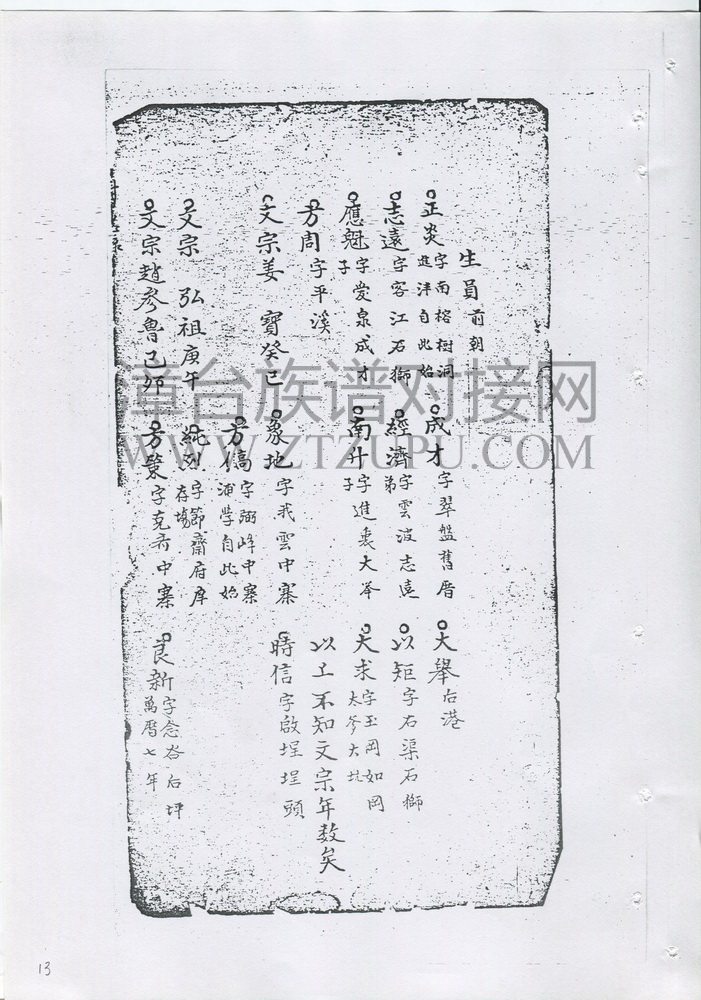 生員 前朝
正炎 字南榕樹洞 進泮自此始 成才 字翠盤舊厝 大舉 后港
志遠 字客江石獅 經濟 字雲波志遠弟 以矩 字石渠石獅
應魁 字愛泉成才子 南升 字進衷大峯子 大求 字玉岡如岡 大峯大坑
方周 字平溪 以上不知文宗年数矣
文宗姜 寶癸巳 象地 字我雲中寨 時信 字啟埕埕頭
方僑 字弼峰中寨 浦学自此始
文宗 弘祖庚午 純烈 字節齋府庠 存塲
文宗趙參魯己卯 方策 字克俞中寨 良新 字念峇后坪 萬曆七年
章台族谱对接网
WWW.ZTZUPU.COM
13